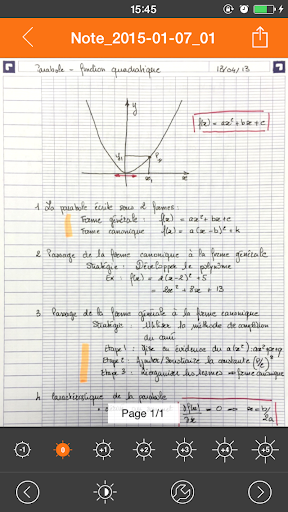 15:45
Note_2015-01-07_01
Parabole - fonction quadratique 13/04/13
y
f(x) = ax² + bx + c
y₁ P₁
x₁ x
1 La parabole écrite sous 2 formes :
Forme générale : f(x) = ax² + bx + c
Forme canonique f(x) = a(x-b)² + k
2 Passage de la forme canonique à la forme générale
Stratégie : Développer le polynôme
Ex : f(x) = 2(x-2)² + 5
= 2x² + 8x + 13
3 Passage de la forme générale à la forme canonique
Stratégie : Utiliser la méthode de complétion
du carré
Etape 1 : Mise en évidence du a(x²) :
Etape 2 : Ajouter/soustraire la constante
Etape 3 : Réorganiser les termes ⇒ forme canonique
4 Caractéristique de la parabole
Page 1/1
= 0 ⇒ x = b/2a
-1 0 +1 +2 +3 +4 +5